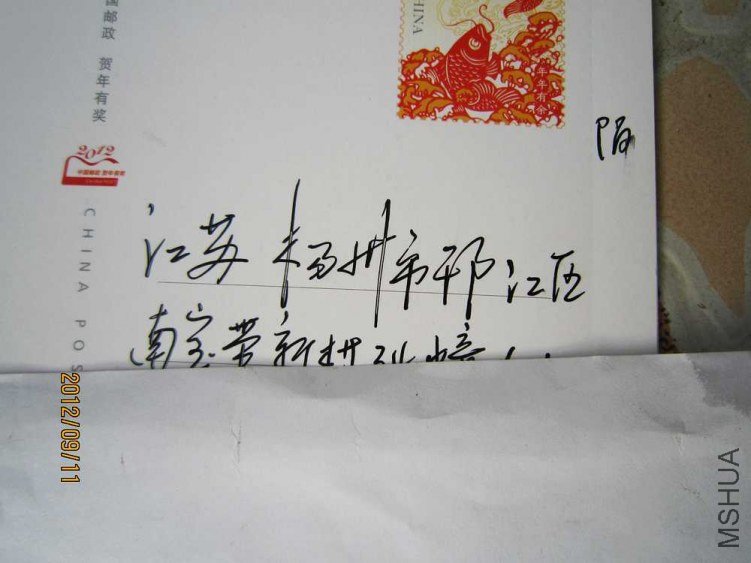 国邮政 贺年有奖
2012
中国邮政 贺年有奖
CHINA POS
CHINA
年年有余
江苏 扬州市邗江区
南宝带新进
2012/09/11
MSHUA